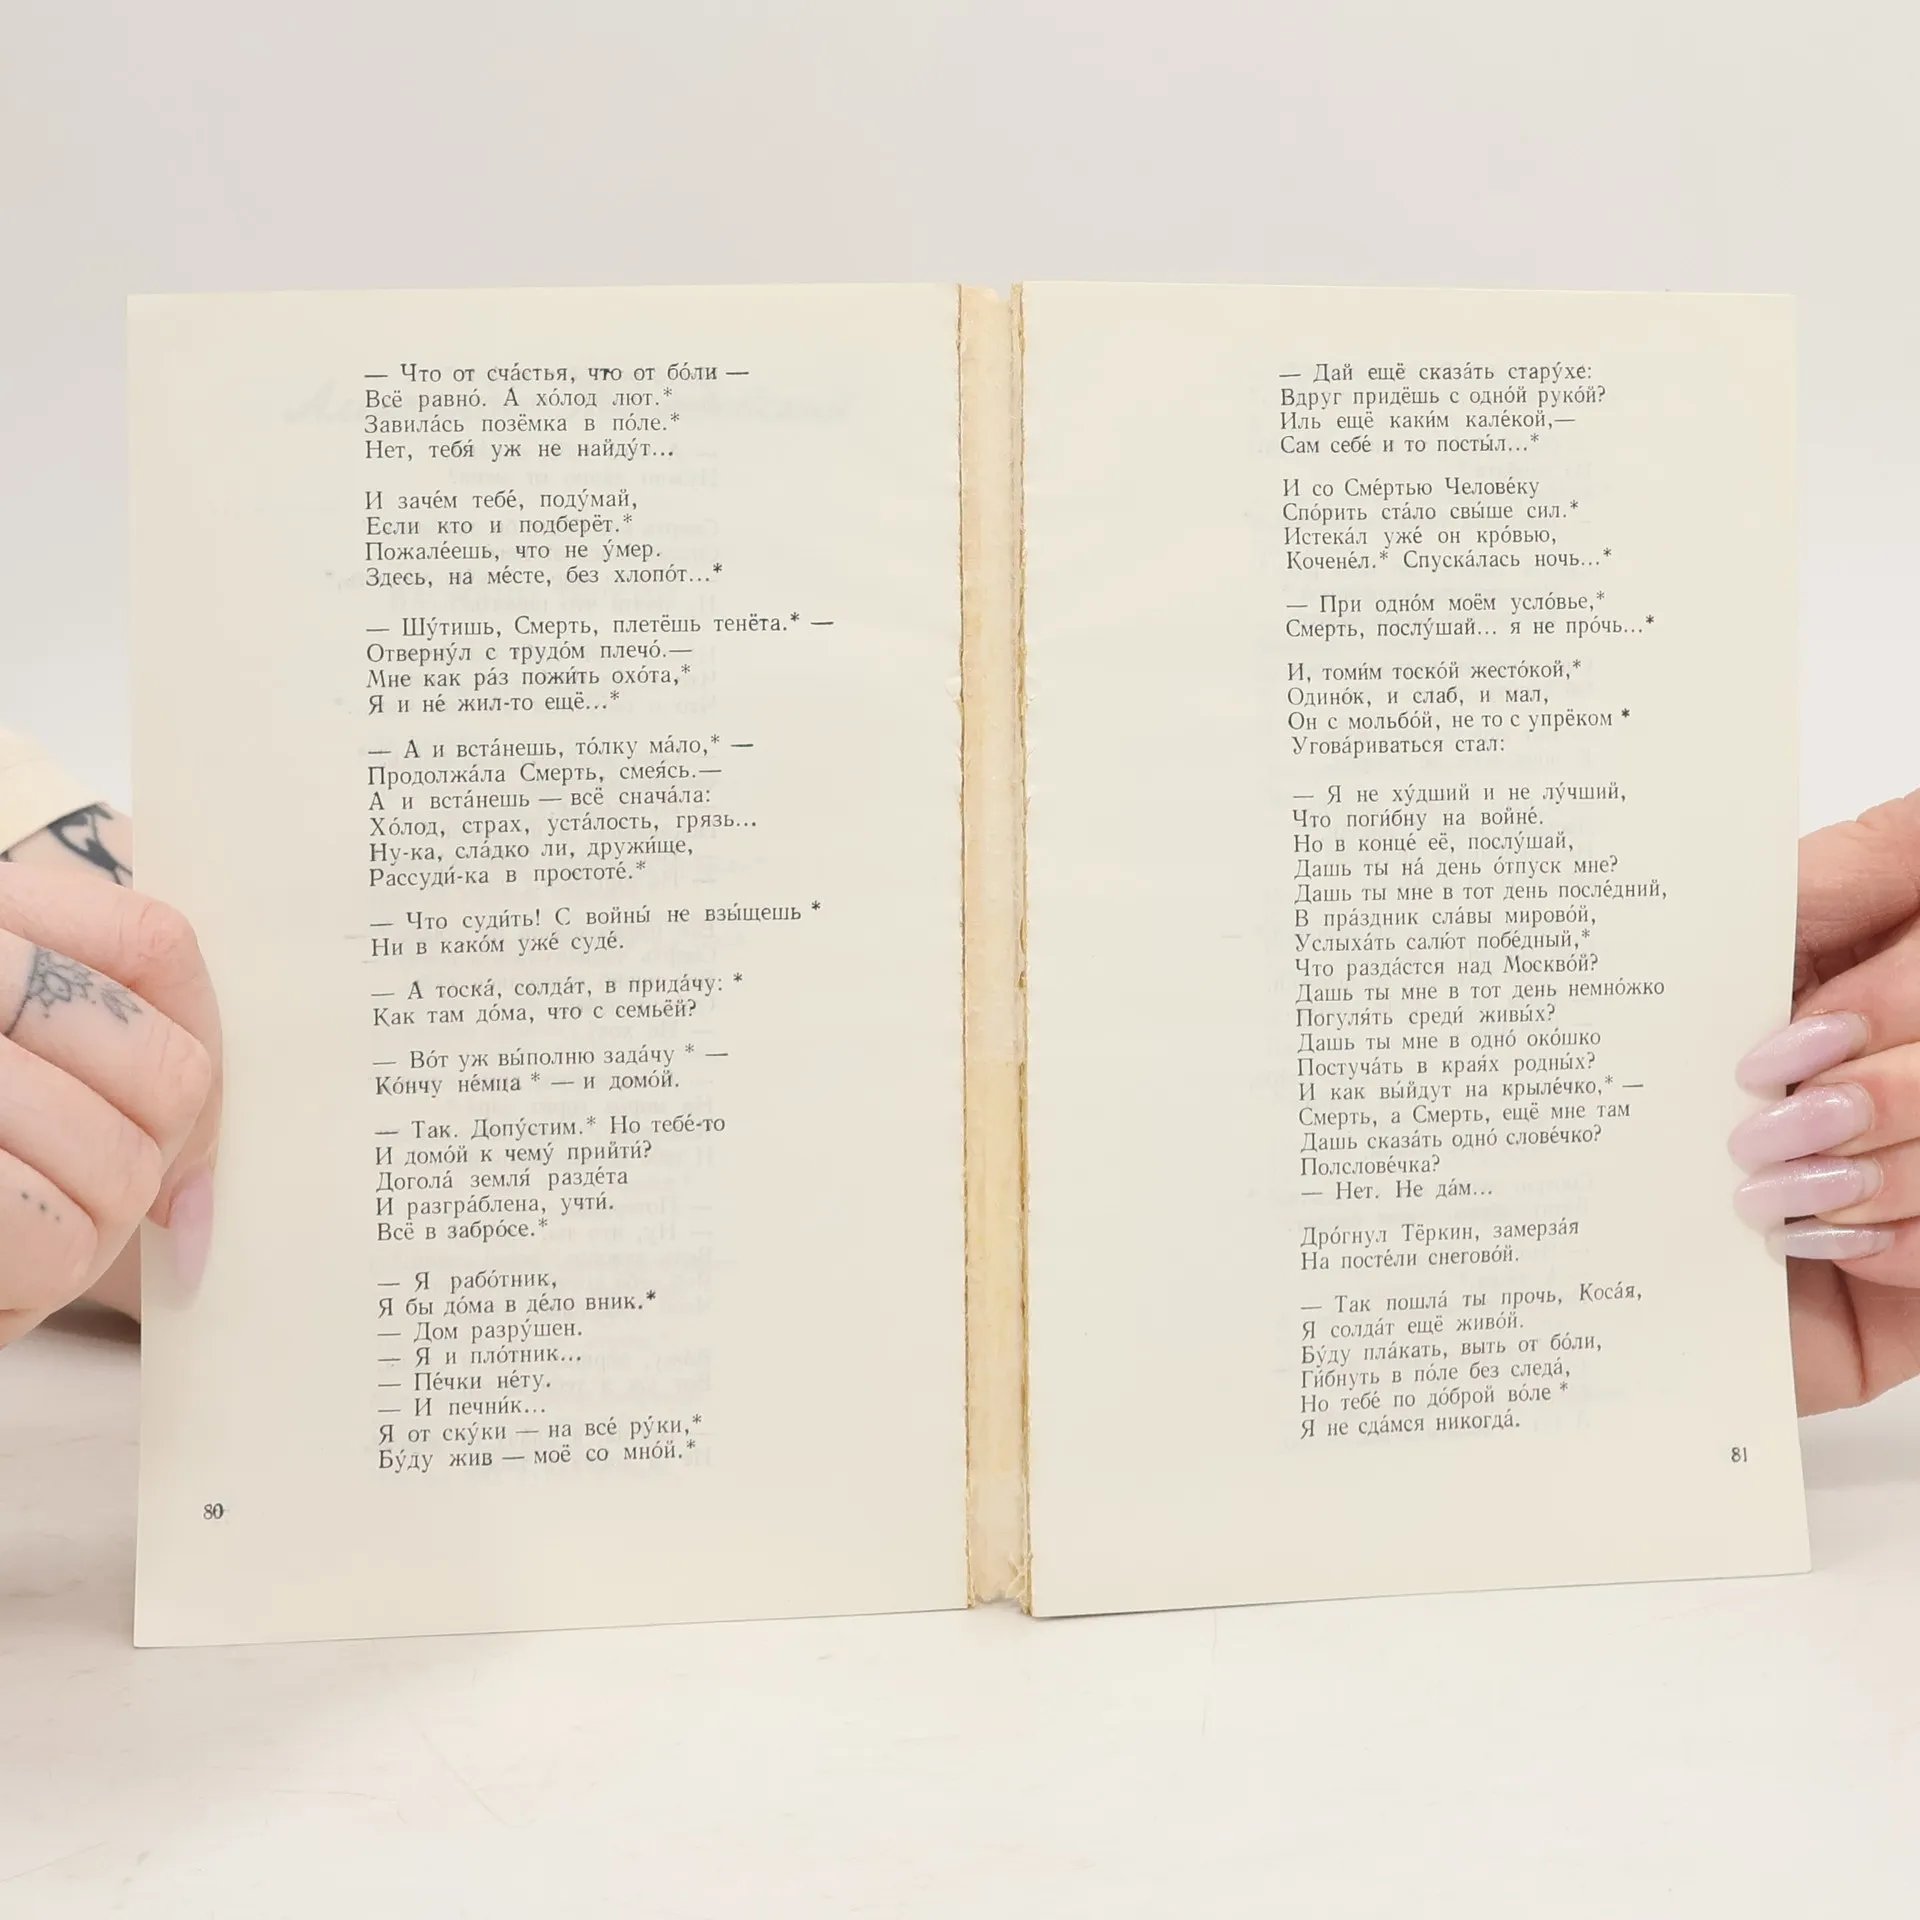 — Что от сча́стья, что от бо́ли —
Всё равно́. А хо́лод лют.*
Завила́сь позёмка в по́ле.*
Нет, тебя́ уж не найду́т...
И заче́м тебе́, поду́май,
Если кто и подберёт.*
Пожале́ешь, что не у́мер.
Здесь, на ме́сте, без хлопо́т...*
— Шу́тишь, Смерть, плетёшь тенёта.* —
Отверну́л с трудо́м плечо́.—
Мне как ра́з пожи́ть охо́та,*
Я и не́ жил-то ещё...*
— А и вста́нешь, то́лку ма́ло,* —
Продолжа́ла Смерть, смея́сь.—
А и вста́нешь — всё снача́ла:
Хо́лод, страх, уста́лость, грязь...
Ну-ка, сла́дко ли, дружи́ще,
Рассуди́-ка в простоте́.*
— Что суди́ть! С войны́ не взы́щешь *
Ни в како́м уже́ суде́.
— А тоска́, солда́т, в прида́чу: *
Как там до́ма, что с семьёй?
— Во́т уж вы́полню зада́чу * —
Ко́нчу не́мца * — и домо́й.
— Так. Допу́стим.* Но тебе́-то
И домо́й к чему́ прийти́?
Догола́ земля́ разде́та
И разгра́блена, учти́.
Всё в забро́се.*
— Я рабо́тник,
Я бы до́ма в де́ло вник.*
— Дом разру́шен.
— Я и пло́тник...
— Пе́чки не́ту.
— И печни́к...
Я от ску́ки — на все́ ру́ки,*
Бу́ду жив — моё со мно́й.*
80
— Дай ещё сказа́ть стару́хе:
Вдруг придёшь с одно́й руко́й?
Иль ещё каки́м кале́кой,—
Сам себе́ и то посты́л...*
И со Сме́ртью Челове́ку
Спо́рить ста́ло свы́ше сил.*
Истека́л уже́ он кро́вью,
Кочене́л.* Спуска́лась ночь...*
— При одно́м моём усло́вье,*
Смерть, послу́шай... я не про́чь...*
И, томи́м тоско́й жесто́кой,*
Одино́к, и слаб, и мал,
Он с мольбо́й, не то с упрёком *
Угова́риваться стал:
— Я не ху́дший и не лу́чший,
Что поги́бну на войне́.
Но в конце́ её, послу́шай,
Дашь ты на́ день о́тпуск мне?
Дашь ты мне в тот день после́дний,
В пра́здник сла́вы мирово́й,
Услыха́ть салю́т побе́дный,*
Что разда́стся над Москво́й?
Дашь ты мне в тот день немно́жко
Погуля́ть среди́ живы́х?
Дашь ты мне в одно́ око́шко
Постуча́ть в края́х родны́х?
И как вы́йдут на крыле́чко,* —
Смерть, а Смерть, ещё мне там
Дашь сказа́ть одно́ слове́чко?
Полслове́чка?
— Нет. Не да́м...
Дро́гнул Тёркин, замерза́я
На посте́ли снегово́й.
— Так пошла́ ты прочь, Коса́я,
Я солда́т ещё живо́й.
Бу́ду пла́кать, выть от бо́ли,
Ги́бнуть в по́ле без следа́,
Но тебе́ по до́брой во́ле *
Я не сда́мся никогда́.
81